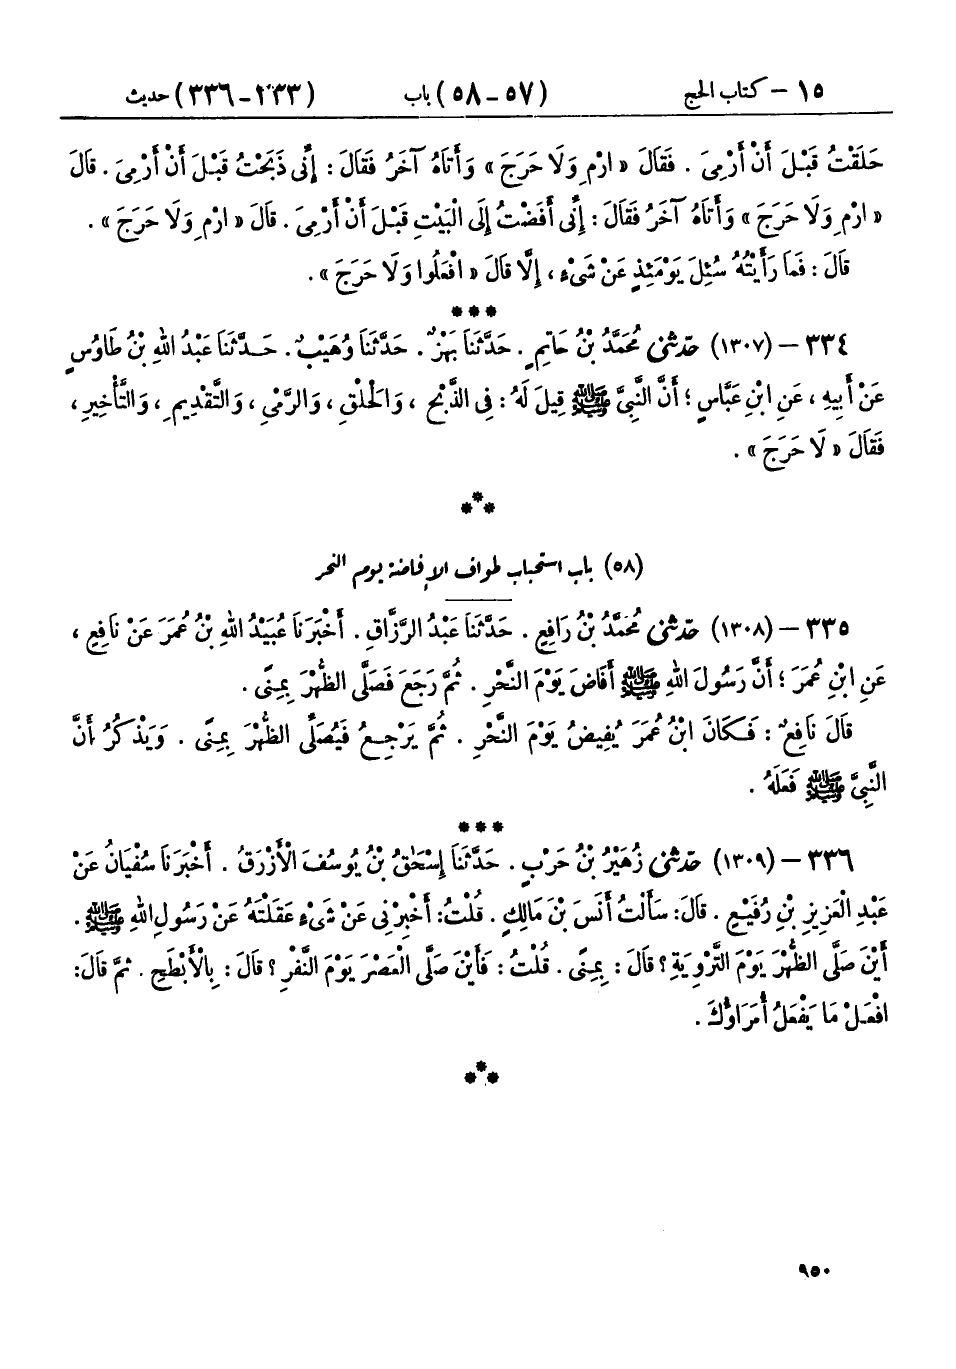 ١٥ – كتاب الحج (٥٧ – ٥٨) باب (٣٣٣ – ٣٣٦) حديث
حَلَقْتُ قَبْلَ أَنْ أَرْمِىَ . فَقَالَ « ارْمِ وَلَا حَرَجَ » وَأَتَاهُ آخَرُ فَقَالَ : إِنِّى ذَبَحْتُ قَبْلَ أَنْ أَرْمِىَ . قَالَ
« ارْمِ وَلَا حَرَجَ » وَأَتَاهُ آخَرُ فَقَالَ : إِنِّى أَفَضْتُ إِلَى الْبَيْتِ قَبْلَ أَنْ أَرْمِىَ . قَالَ « ارْمِ وَلَا حَرَجَ » .
قَالَ : فَمَا رَأَيْتُهُ سُئِلَ يَوْمَئِذٍ عَنْ شَىْءٍ ، إِلَّا قَالَ « افْعَلُوا وَلَا حَرَجَ » .
***
٣٣٤ – (١٣٠٧) حَدَّثَنِى مُحَمَّدُ بْنُ حَاتِمٍ . حَدَّثَنَا بَهْزٌ . حَدَّثَنَا وُهَيْبٌ . حَدَّثَنَا عَبْدُ اللهِ بْنُ طَاوُسٍ
عَنْ أَبِيهِ ، عَنِ ابْنِ عَبَّاسٍ ؛ أَنَّ النَّبِىَّ ﷺ قِيلَ لَهُ : فِى الذَّبْحِ ، وَالْحَلْقِ ، وَالرَّمْىِ ، وَالتَّقْدِيمِ ، وَالتَّأْخِيرِ ،
فَقَالَ « لَا حَرَجَ » .
***
(٥٨) باب استحباب طواف الإفاضة يوم النحر
٣٣٥ – (١٣٠٨) حَدَّثَنِى مُحَمَّدُ بْنُ رَافِعٍ . حَدَّثَنَا عَبْدُ الرَّزَّاقِ . أَخْبَرَنَا عُبَيْدُ اللهِ بْنُ عُمَرَ عَنْ نَافِعٍ ،
عَنِ ابْنِ عُمَرَ ؛ أَنَّ رَسُولَ اللهِ ﷺ أَفَاضَ يَوْمَ النَّحْرِ . ثُمَّ رَجَعَ فَصَلَّى الظُّهْرَ بِمِنًى .
قَالَ نَافِعٌ : فَكَانَ ابْنُ عُمَرَ يُفِيضُ يَوْمَ النَّحْرِ . ثُمَّ يَرْجِعُ فَيُصَلِّى الظُّهْرَ بِمِنًى . وَيَذْكُرُ أَنَّ
النَّبِىَّ ﷺ فَعَلَهُ .
***
٣٣٦ – (١٣٠٩) حَدَّثَنِى زُهَيْرُ بْنُ حَرْبٍ . حَدَّثَنَا إِسْحَٰقُ بْنُ يُوسُفَ الْأَزْرَقُ . أَخْبَرَنَا سُفْيَانُ عَنْ
عَبْدِ الْعَزِيزِ بْنِ رُفَيْعٍ . قَالَ: سَأَلْتُ أَنَسَ بْنَ مَالِكٍ . قُلْتُ: أَخْبِرْنِى عَنْ شَىْءٍ عَقَلْتَهُ عَنْ رَسُولِ اللهِ ﷺ .
أَيْنَ صَلَّى الظُّهْرَ يَوْمَ التَّرْوِيَةِ ؟ قَالَ : بِمِنًى . قُلْتُ : فَأَيْنَ صَلَّى الْعَصْرَ يَوْمَ النَّفْرِ ؟ قَالَ : بِالْأَبْطَحِ . ثُمَّ قَالَ:
افْعَلْ مَا يَفْعَلُ أُمَرَاؤُكَ .
***
٩٥٠